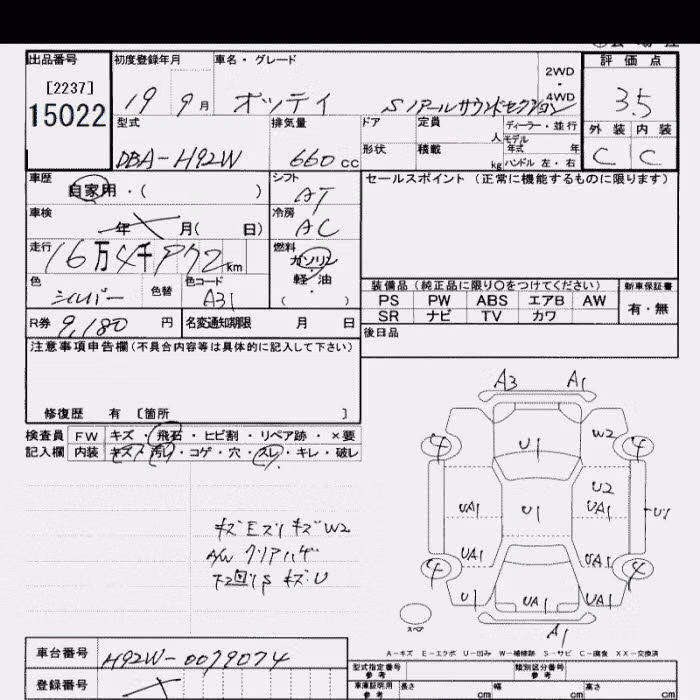 出品番号
[2237]
15022
初度登録年月
19 9月
車名・グレード
オッティ
Sノアールサウンドセレクション
2WD
4WD
評価点
3.5
外装 内装
C C
型式
DBA-H92W
排気量
660cc
ドア
定員
人
ディーラー・並行
モデル
年式 年
形状
積載
kg
ハンドル 左・右
車歴
自家用・( )
シフト
AT
セールスポイント (正常に機能するものに限ります)
車検
年 月( 日)
冷房
AC
走行
16万4千972km
燃料
ガソリン
軽・油
( )
色
シルバー
色替
色コード
A31
装備品(純正品に限り〇をつけてください)
新車保証書
PS PW ABS エアB AW
SR ナビ TV カワ
有・無
R券 9,180 円
名変通知期限 月 日
後日品
注意事項申告欄(不具合内容等は具体的に記入して下さい)
修復歴 有 [箇所 ]
検査員
記入欄
FW キズ・飛石・ヒビ割・リペア跡・×要
内装 キズ・汚レ・コゲ・穴・スレ・キレ・破レ
キズEスリキズW2
A/W クリアハゲ
下回りS キズU
A3 A1
4 U1 W2 4
U2
UA1 U1 UA1 U1
UA1 UA1
4 4
U1 UA1 UA1
A1
スペア
A-キズ E-エクボ U-凹み W-補修跡 S-サビ C-腐食 XX-交換済
車台番号
H92W-0079074
登録番号
型式指定番号
参考
類別区分番号
参考
車庫証明用
参考
長さ cm
幅 cm
高さ cm